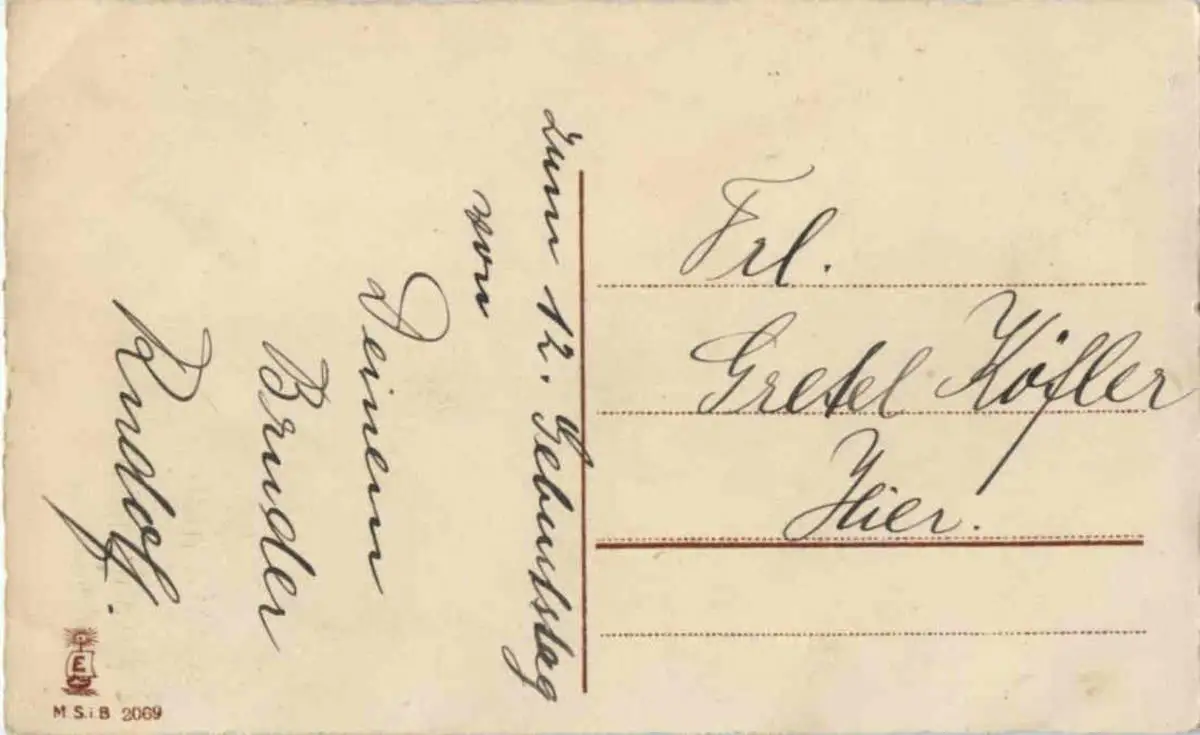 Zum 12. Geburtstag
von
Deinem
Bruder
Rudolf.
Frl.
Gretel Köfler
Hier.
E
M S.i B 2069